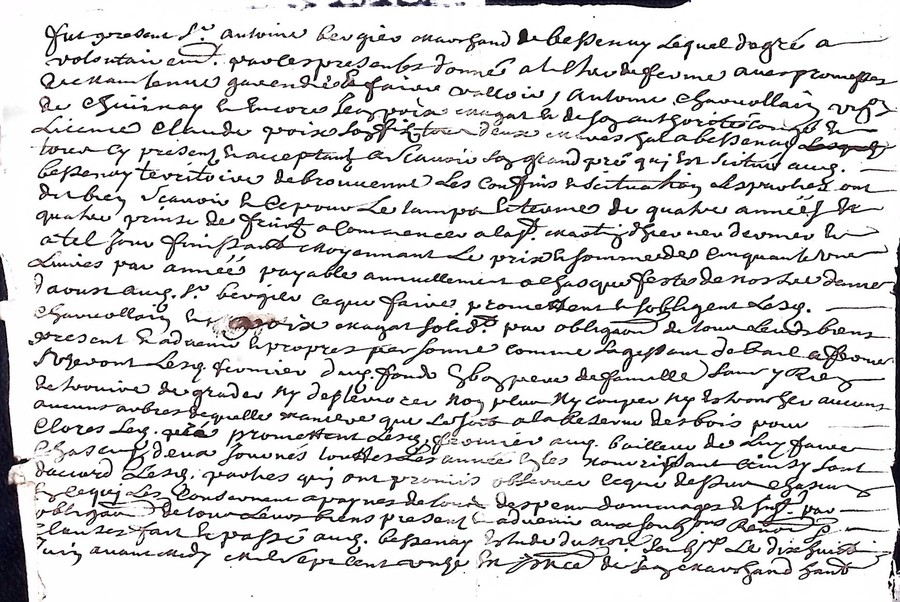 fut present Sr. Antoine bergier marchand de bessenay lequel de gré a
volontairemt. par ces presentes donné a tiltre de ferme avec promesses
de maintenue garendie & faire valloir, Antoine Chavollain vign.
de Chivinay & encore Leonor poix magat & de son authorité congé &
licence Claude poix tous deux mariés aud. bessenay
tous cy present & acceptant, a Scavoir Son grand pré qui est scitué aud.
bessenay territoire de brouvennt Les confins & scituation Lesparties ont
dit bien Scavoir & ce pour Le temps & terme de quatre années &
quatre prinse de fruict a commencer a la St. martin d'hiver dernier &
a tel jour finissant moyennant Le prix & somme de cinquante une
Livres par année payable annuellement a chasque feste de nostre dame
d'aoust aud. Sr bergier ce que faire promettent & s'obligent Lesd.
Chavollain & poix magat solid. par obligaon de tous Leurs biens
present & advenir & propres personne comme Sagissant de bail a ferme
Jouiront Lesd. fermier dud. fonds en bon pere de famille Sans y Rien
detruire de grader ny desteriorer non plus ny couper ny estroncher aucuns
aucuns arbres de quelle maniere que ce soit a la Reserve des bois pour
clores Led. pré promettent Lesd. fermier aud. bailleur de Luy faire
chascun deux journés touttes Les années en les nourissant ainsy sont
d'accord Lesd. parties qui ont promis observer ce que dessus chascun
en ce qui Les Concernant a paynes de tous despens dommages & par
obligaon de tous Leurs biens present & advenir aux
clauses fait & passé aud. bessenay estude du nore soubsé. Le dix huict
Juin avant midy mil sept cent onze en presence de marchand habt